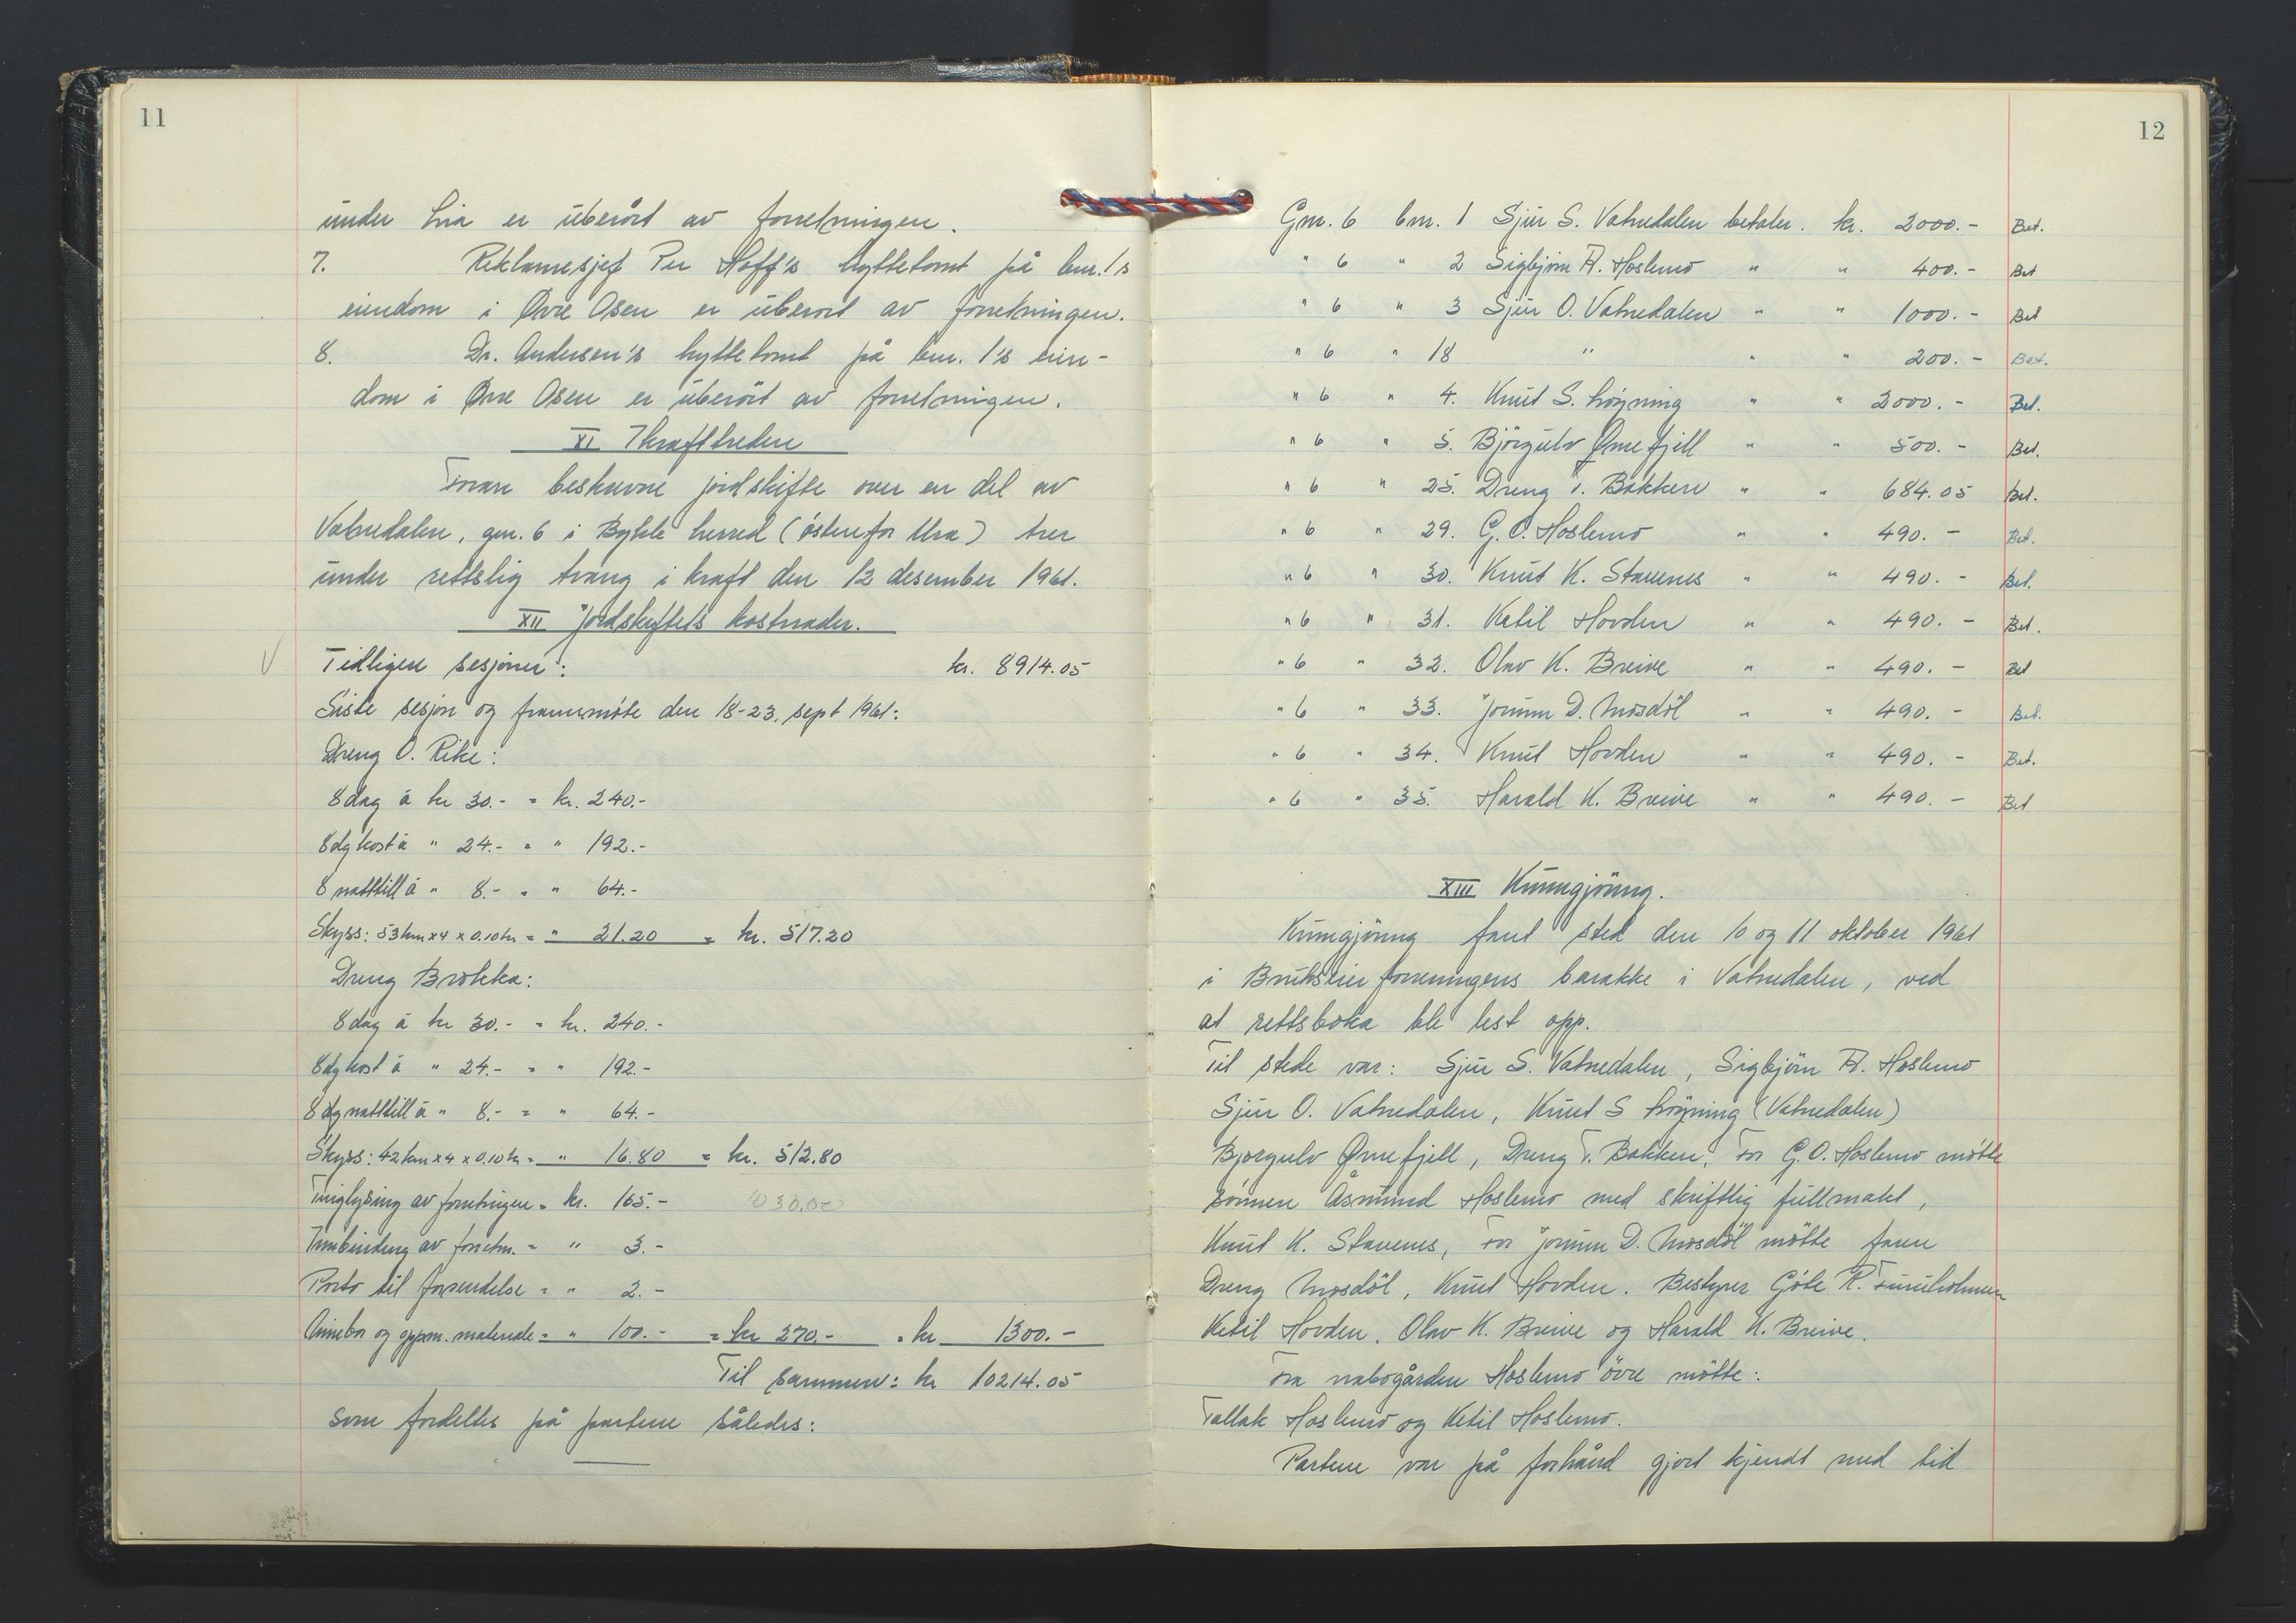 11
under Lia er uberört av forretningen.
7. Reklamesjef Per Hoff's hyttetomt på bnr. 1's
eiendom i Øvre Osen er uberört av forretningen.
8. Dr. Andersen's hyttetomt på bnr. 1's eien-
dom i Øvre Osen er uberört av forretningen.
XI Ikrafttreden
Foran beskrevne jordskifte over en del av
Vatnedalen, gnr. 6 i Bykle herred (östenfor Ura) trer
under rettslig tvang i kraft den 12 desember 1961.
XII Jordskiftets kostnader.
V Tidligere sesjoner: kr. 8914.05
Siste sesjon og frammöte den 18-23. sept 1961:
Dreng O. Rike:
8 dag á kr 30.- = kr. 240.-
8 dg kost á " 24.- = " 192.-
8 natttill á " 8.- = " 64.-
Skyss: 53 km x 4 x 0.10 kr = " 21.20 = kr. 517.20
Dreng Brokka:
8 dag á kr 30.- = kr. 240.-
8 dg kost á " 24.- = " 192.-
8 dg natttill á " 8.- = " 64.-
Skyss: 42 km x 4 x 0.10 kr = " 16.80 = kr. 512.80
Tinglysing av forretningen = kr. 165.- 1030.00
Innbinding av forretn. = " 3.-
Porto til forsendelse = " 2.-
og oppm. materiale = " 100.- = kr 270.- = kr 1300.-
Til sammen: kr 10214.05
som fordeltes på partene således:
12
Gnr. 6 bnr. 1 Sjur S. Vatnedalen betaler. kr. 2000.- Bet.
" 6 " 2 Sigbjörn H. Hoslemo " " 400.- Bet
" 6 " 3 Sjur O. Vatnedalen " " 1000.- Bet
" 6 " 18 " " " 200.- Bet.
" 6 " 4. Knut S. Löyning " " 2000.- Bet.
" 6 " 5. Björgulv Ørnefjell " " 500.- Bet.
" 6 " 25. Dreng T. Bakken " " 684.05 Bet.
" 6 " 29. G. O. Hoslemo " " 490.- Bet.
" 6 " 30. Knut K. Stavenes " " 490.- Bet.
" 6 " 31. Ketil Hovden " " 490.- Bet.
" 6 " 32. Olav K. Breive " " 490.- Bet
" 6 " 33. Jorunn D. Mosdöl " " 490.- Bet.
" 6 " 34. Knut Hovden " " 490.- Bet.
" 6 " 35. Harald K. Breive " " 490.- Bet
XIII Kunngjöring.
Kunngjöring fant sted den 10 og 11 oktober 1961
i Brukseierforeningens barakke i Vatnedalen, ved
at rettsboka ble lest opp.
Til stede var: Sjur S. Vatnedalen, Sigbjörn H. Hoslemo
Sjur O. Vatnedalen, Knut S Löyning (Vatnedalen)
Bjorgulv Ørnefjell, Dreng T. Bakken, For G.O. Hoslemo mötte
sönnen Åsmund Hoslemo med skriftlig fullmakt,
Knut K. Stavenes, For Jorunn D. Mosdöl mötte faren
Dreng Mosdöl, Knut Hovden. Bestyrer Göte R. Furuholmen
Ketil Hovden, Olav K. Breive og Harald K. Breive.
Fra nabogården Hoslemo övre mötte:
Tallak Hoslemo og Ketil Hoslemo.
Partene var på forhånd gjort kjendt med tid